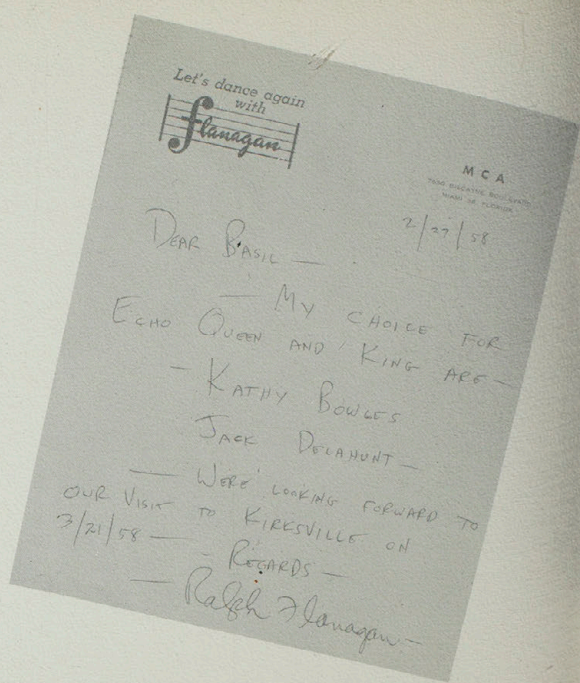 Let's dance again
with
flanagan
MCA
MIAMI 32, FLORIDA
2/27/58
DEAR BASIL —
— MY CHOICE FOR
ECHO QUEEN AND KING ARE —
— KATHY BOWLES
JACK DELAHUNT —
— WERE' LOOKING FORWARD TO
OUR VISIT TO KIRKSVILLE ON
3/21/58 —
- REGARDS —
— Ralph Flanagan —